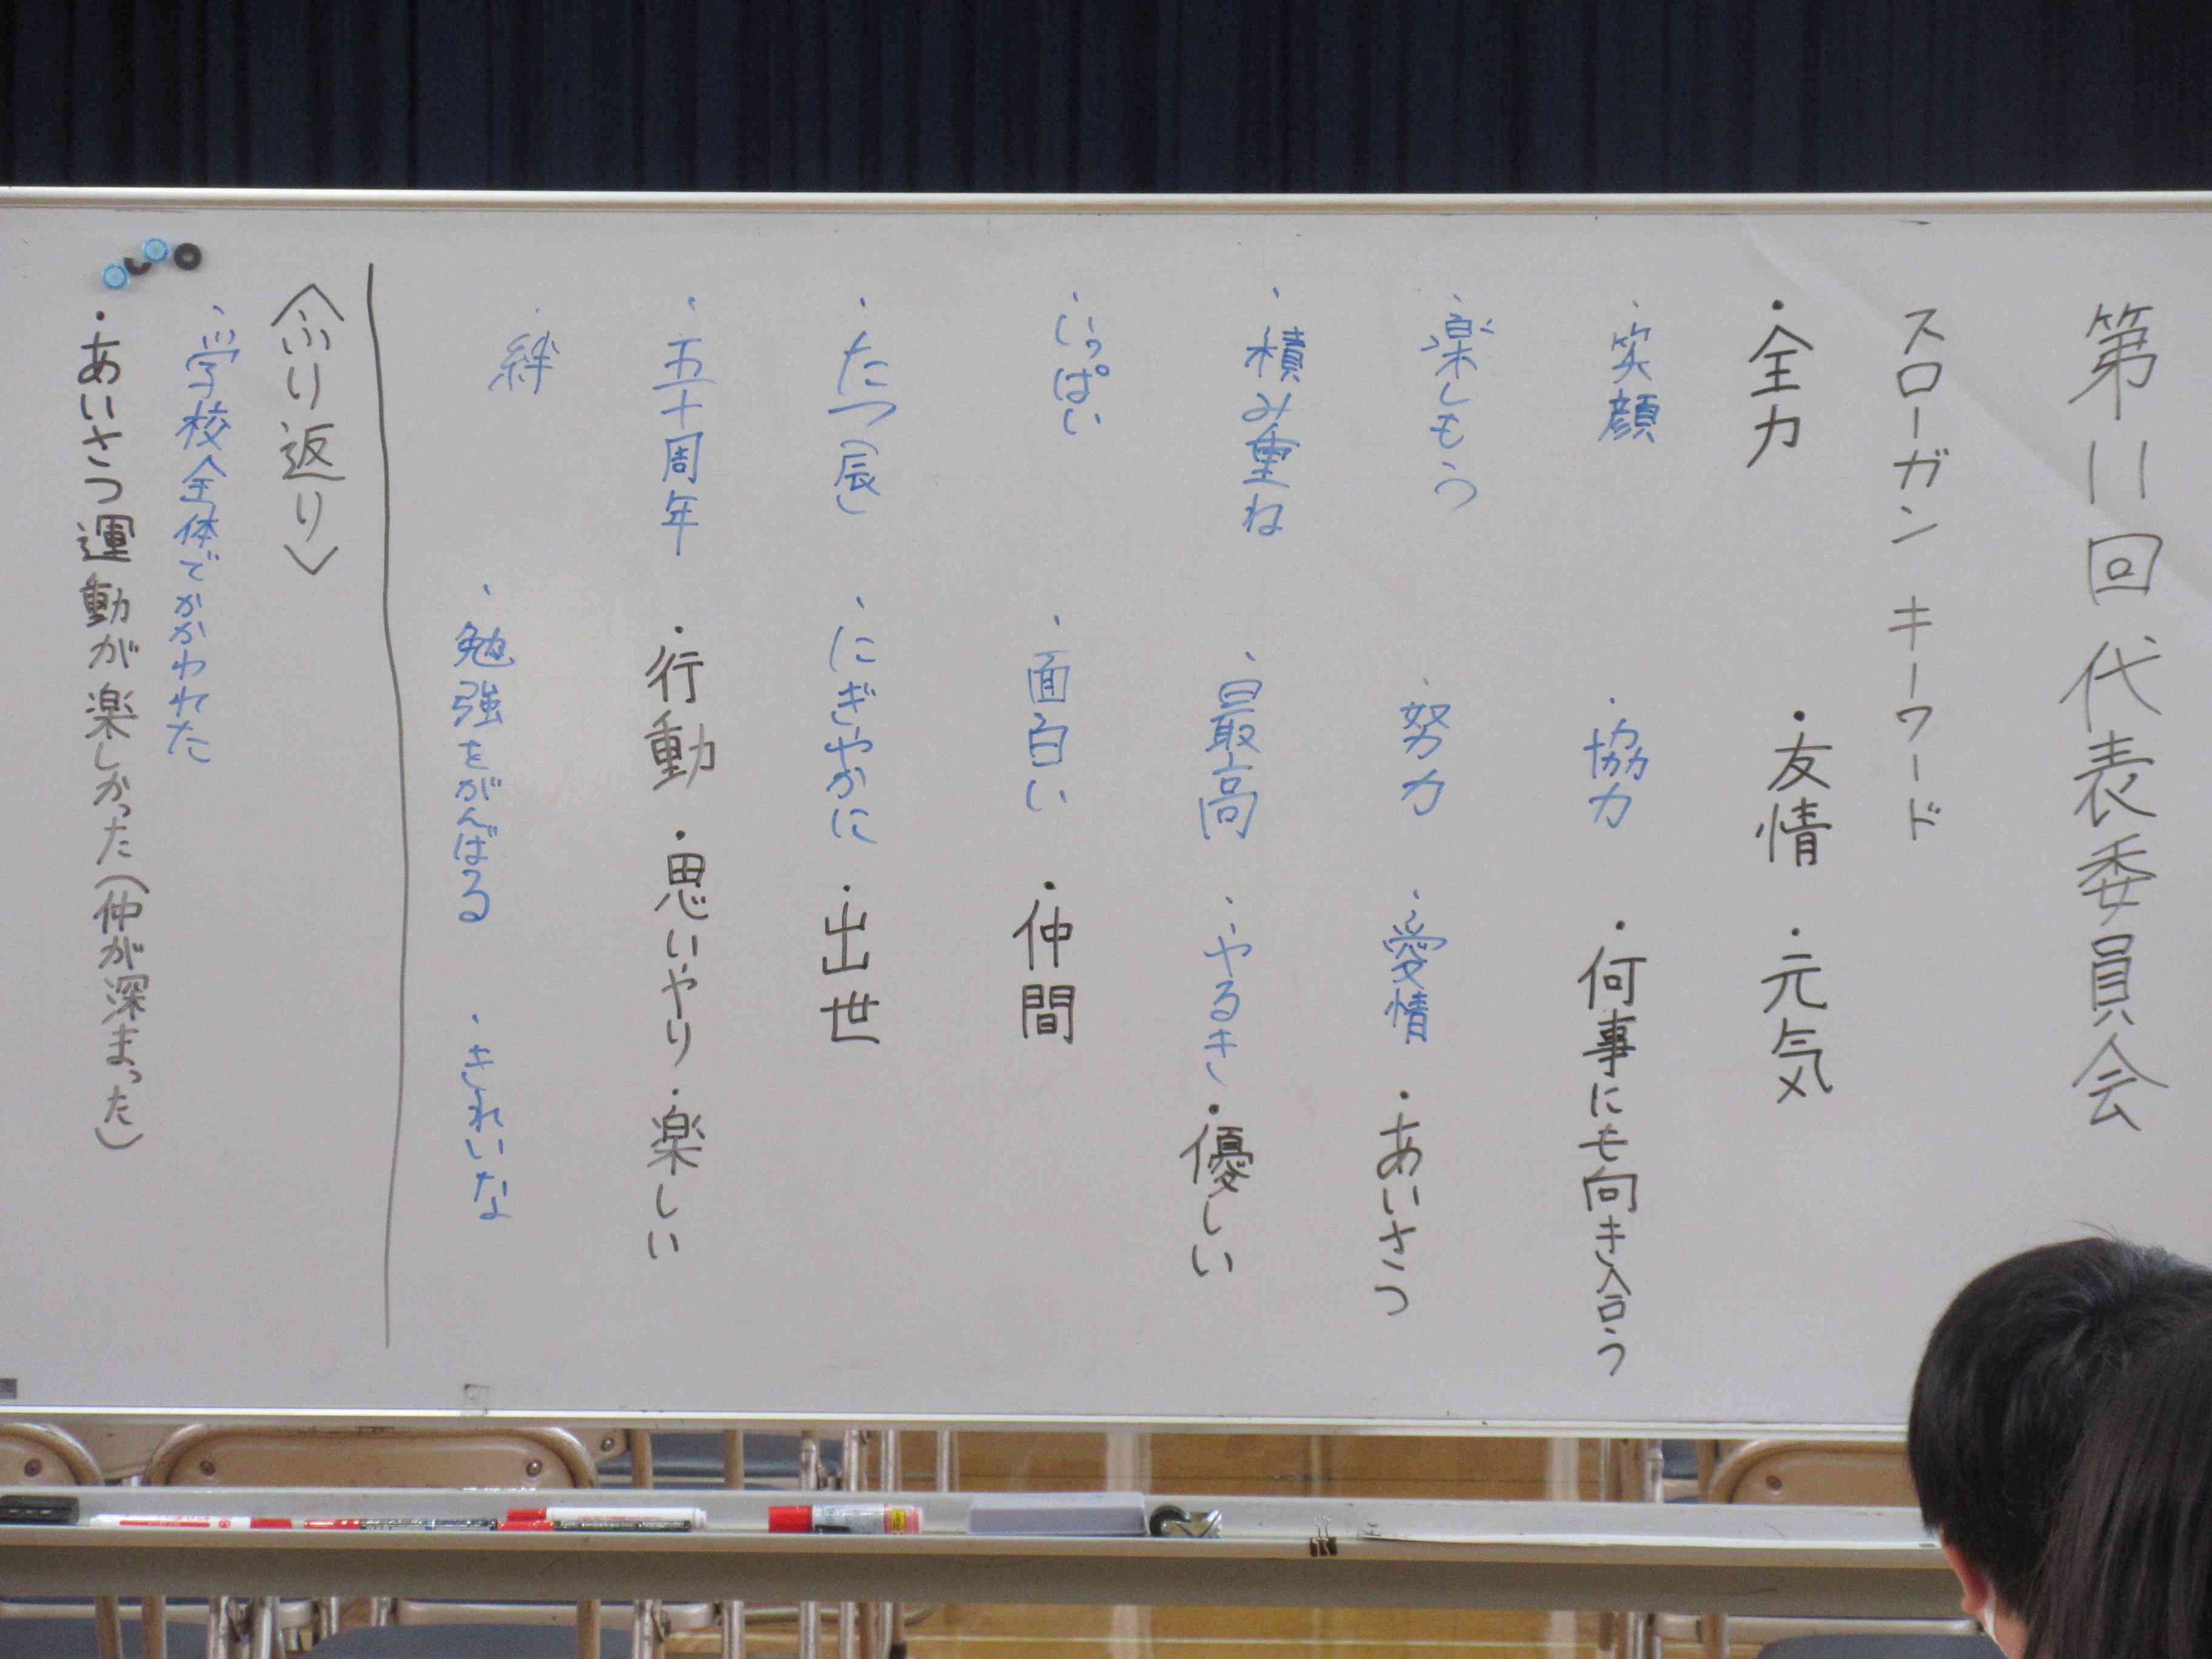 第11回代表委員会
スローガン キーワード
・全力 ・友情 ・元気
・笑顔 ・協力 ・何事にも向き合う
・楽しもう ・努力 ・愛情 ・あいさつ
・積み重ね ・最高 ・やるき ・優しい
・いっぱい ・面白い ・仲間
・たつ(辰) ・にぎやかに ・出世
・五十周年 ・行動 ・思いやり ・楽しい
・絆 ・勉強をがんばる ・きれいな
〈ふり返り〉
・学校全体でかかわれた
・あいさつ運動が楽しかった(仲が深まった)